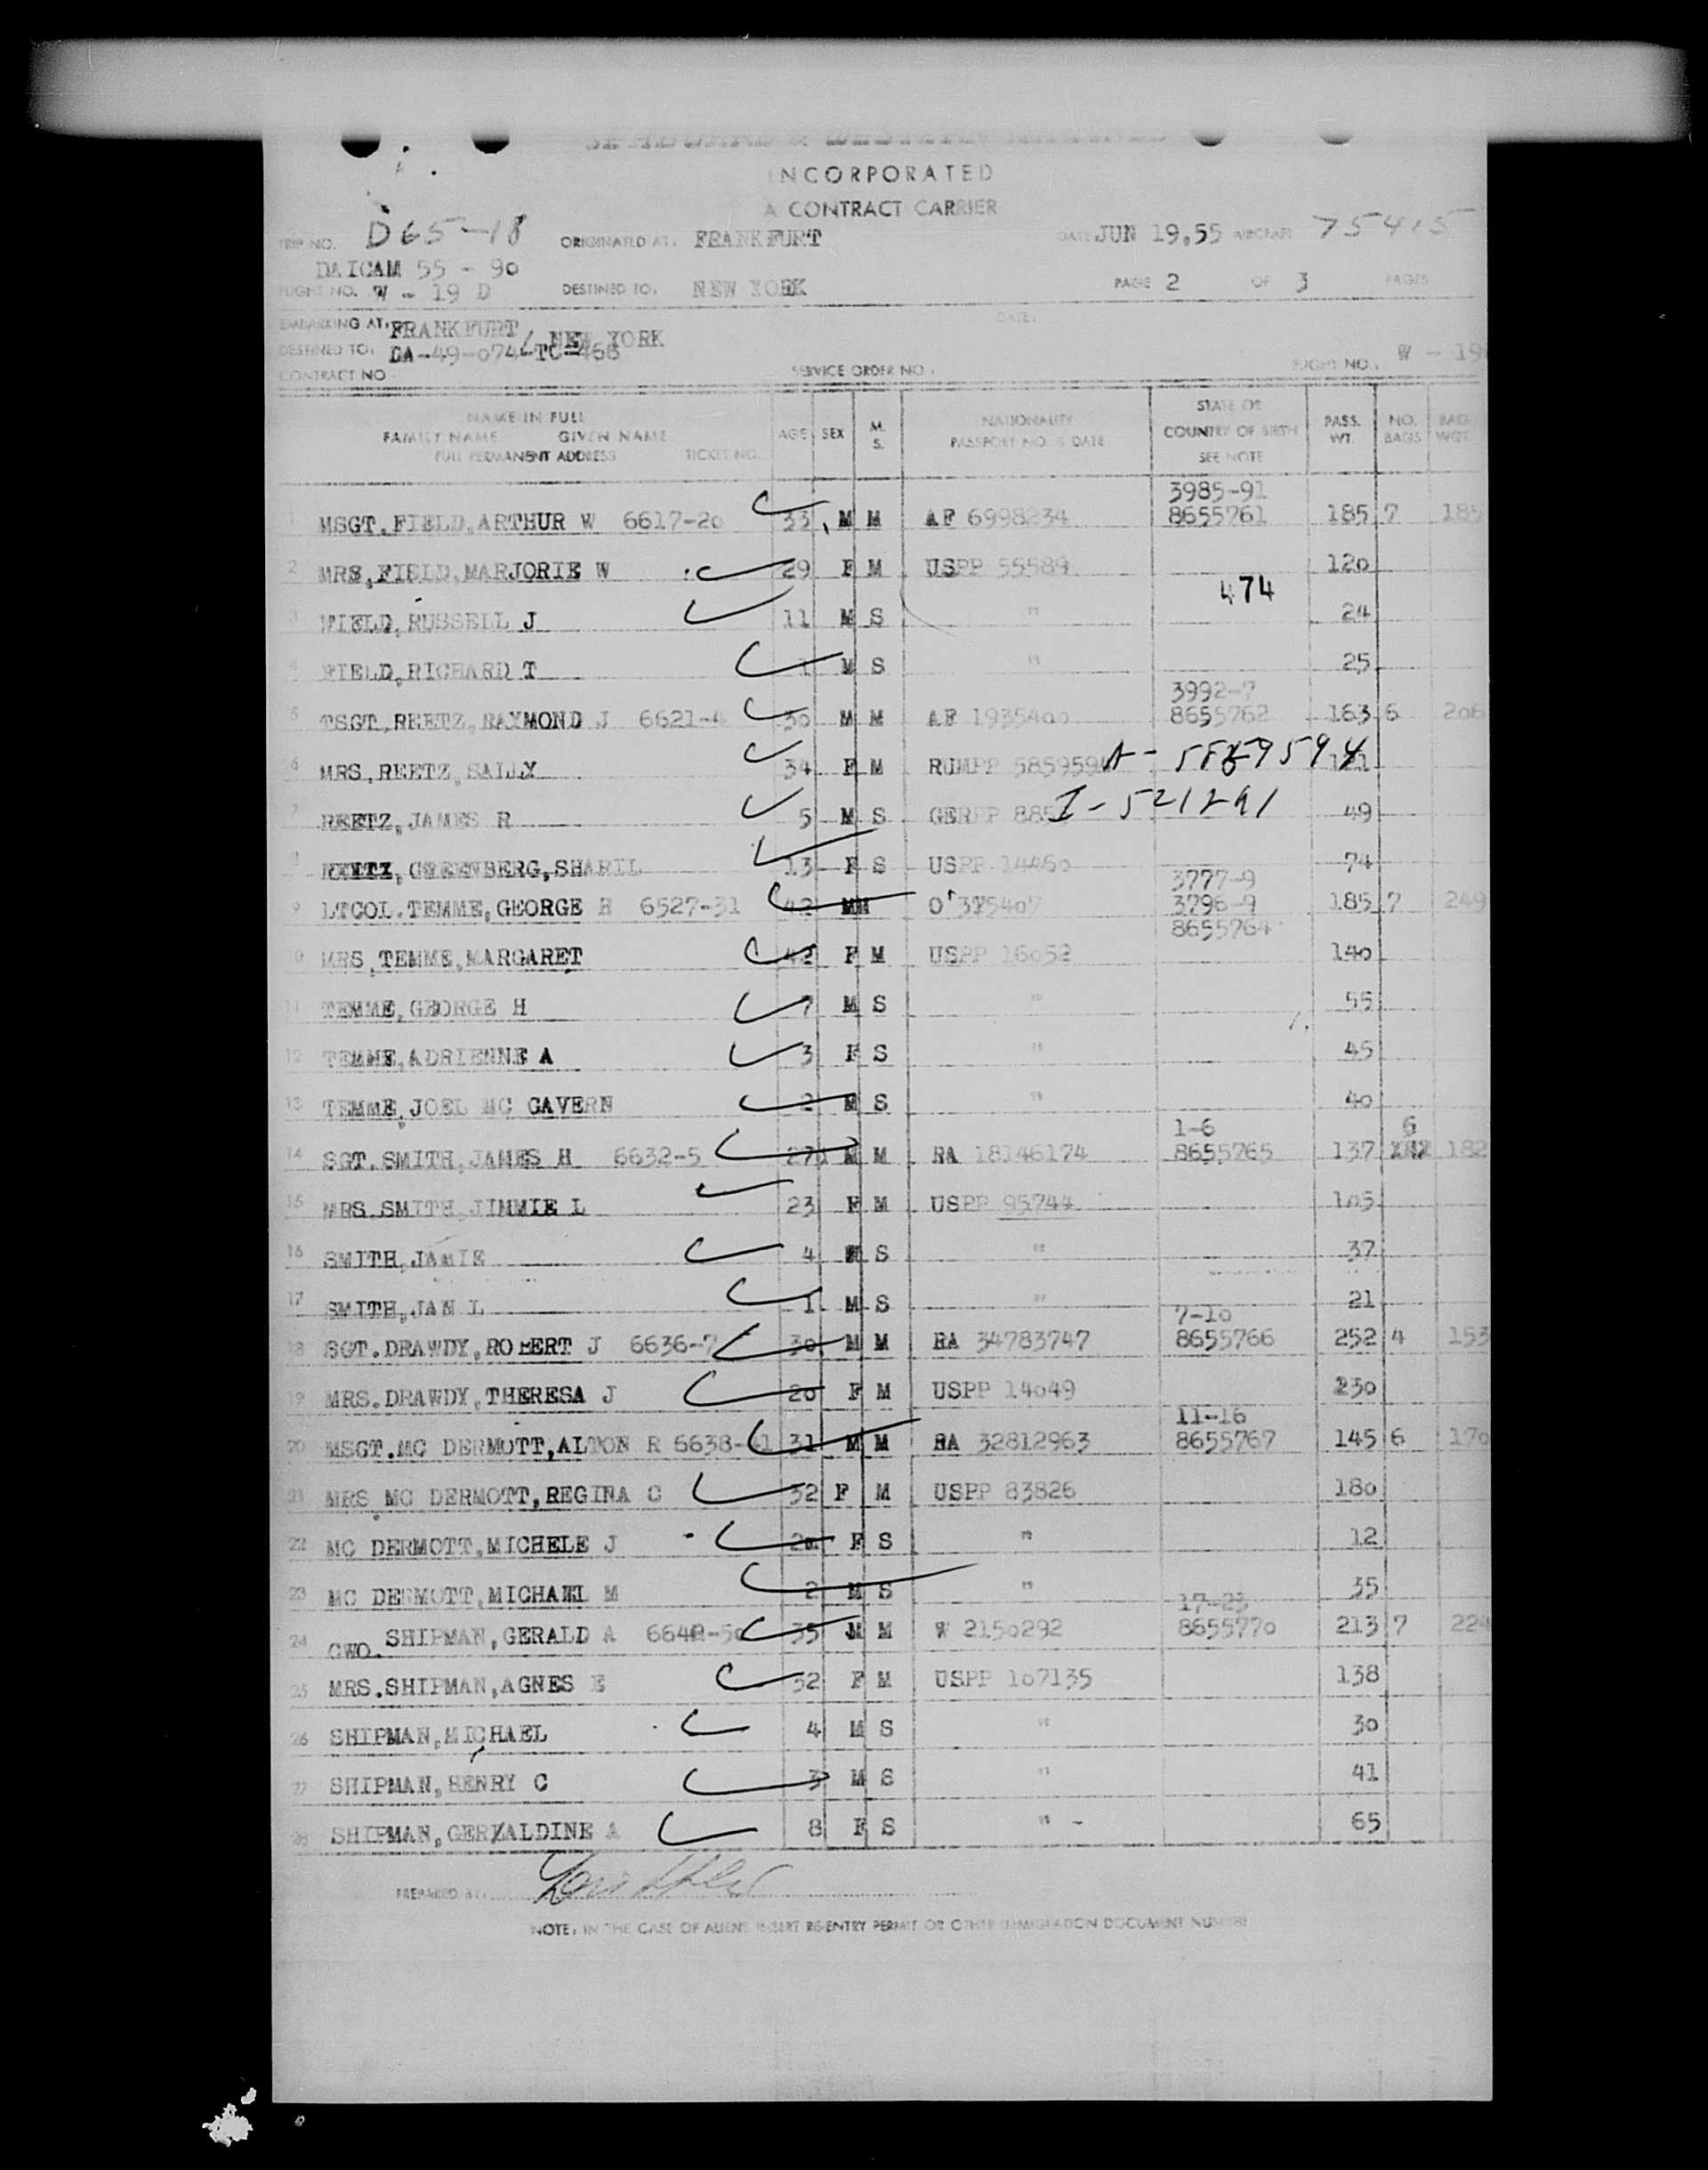 INCORPORATED
A CONTRACT CARRIER
TRIP NO. D65-18 ORIGINATED AT: FRANKFURT DATE JUN 19,55 AIRCRAFT 75415
DAICAM 55 - 90
FLIGHT NO. W - 19 D DESTINED TO: NEW YORK PAGE 2 OF 3 PAGES
EMBARKING AT: FRANKFURT / NEW YORK DATE:
DESTINED TO: DA-49-074-TC-466
CONTRACT NO SERVICE ORDER NO. FLIGHT NO. W - 19
NAME IN FULL
FAMILY NAME GIVEN NAME
FULL PERMANENT ADDRESS TICKET NO.
AGE SEX M. S. NATIONALITY PASSPORT NO. & DATE STATE OR COUNTRY OF BIRTH SEE NOTE PASS. WT. NO. BAGS BAG. WGT.
3985-91
1 MSGT.FIELD,ARTHUR W 6617-20 33 M M AF 6998234 8655761 185 7 185
2 MRS,FIELD,MARJORIE W 29 F M USPP 55589 120
474
3 FIELD,RUSSELL J 11 M S " 24
4 FIELD,RICHARD T 1 M S " 25
3992-7
5 TSGT.REETZ,RAYMOND J 6621-4 30 M M AF 1935400 8655762 163 6 206
6 MRS,REETZ,SALLY 34 F M RUMPP 585959 A-5859594
7 REETZ,JAMES R 5 M S GERPP 885 I-521291 49
8 REETZ,GREENBERG,SHARIL 13 F S USPP 14460 74
3777-9
9 LTCOL.TEMME,GEORGE H 6527-31 42 M M 3796-9 185 7 249
8655764
10 MRS,TEMME,MARGARET 42 F M USPP 16052 140
11 TEMME,GEORGE H 7 M S " 55
12 TEMME,ADRIENNE A 3 F S " 45
13 TEMME,JOEL MC GAVERN 2 M S " 40
1-6 6
14 SGT.SMITH,JAMES H 6632-5 27 M M RA 18146174 8655765 137 182
15 MRS.SMITH,JIMMIE L 23 F M USPP 95744 105
16 SMITH,JAMIE 4 M S " 37
17 SMITH,JAN L 1 M S " 21
7-10
18 SGT.DRAWDY,ROBERT J 6636-7 30 M M RA 34783747 8655766 252 4 153
19 MRS.DRAWDY,THERESA J 20 F M USPP 14049 230
11-16
20 MSGT.MC DERMOTT,ALTON R 6638-41 31 M M RA 32812963 8655767 145 6 170
21 MRS MC DERMOTT,REGINA C 32 F M USPP 83826 180
22 MC DERMOTT,MICHELE J F S " 12
23 MC DERMOTT,MICHAEL M 2 M S " 35
17-23
24 CWO.SHIPMAN,GERALD A 35 M M W 2150292 8655770 213 7 224
25 MRS.SHIPMAN,AGNES E 32 F M USPP 107135 138
26 SHIPMAN,MICHAEL 4 M S " 30
27 SHIPMAN,HENRY C 3 M S " 41
28 SHIPMAN,GERALDINE A 8 F S " - 65
PREPARED BY:
NOTE: IN THE CASE OF ALIENS INSERT RE-ENTRY PERMIT OR OTHER IMMIGRATION DOCUMENT NUMBER